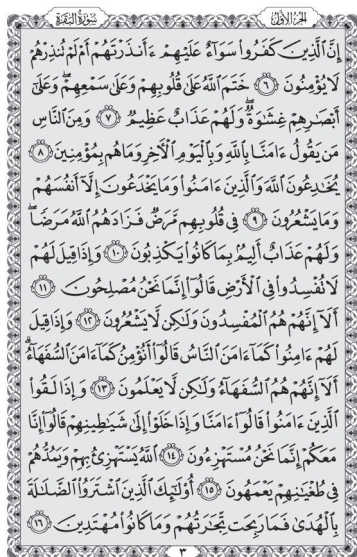 الجزء الأول
سورة البقرة
إِنَّ ٱلَّذِينَ كَفَرُوا۟ سَوَآءٌ عَلَيْهِمْ ءَأَنذَرْتَهُمْ أَمْ لَمْ تُنذِرْهُمْ
لَا يُؤْمِنُونَ ٦ خَتَمَ ٱللَّهُ عَلَىٰ قُلُوبِهِمْ وَعَلَىٰ سَمْعِهِمْ ۖ وَعَلَىٰٓ
أَبْصَٰرِهِمْ غِشَٰوَةٌ ۖ وَلَهُمْ عَذَابٌ عَظِيمٌ ٧ وَمِنَ ٱلنَّاسِ
مَن يَقُولُ ءَامَنَّا بِٱللَّهِ وَبِٱلْيَوْمِ ٱلْءَاخِرِ وَمَا هُم بِمُؤْمِنِينَ ٨
يُخَٰدِعُونَ ٱللَّهَ وَٱلَّذِينَ ءَامَنُوا۟ وَمَا يَخْدَعُونَ إِلَّآ أَنفُسَهُمْ
وَمَا يَشْعُرُونَ ٩ فِى قُلُوبِهِم مَّرَضٌ فَزَادَهُمُ ٱللَّهُ مَرَضًا ۖ
وَلَهُمْ عَذَابٌ أَلِيمٌۢ بِمَا كَانُوا۟ يَكْذِبُونَ ١٠ وَإِذَا قِيلَ لَهُمْ
لَا تُفْسِدُوا۟ فِى ٱلْأَرْضِ قَالُوٓا۟ إِنَّمَا نَحْنُ مُصْلِحُونَ ١١
أَلَآ إِنَّهُمْ هُمُ ٱلْمُفْسِدُونَ وَلَٰكِن لَّا يَشْعُرُونَ ١٢ وَإِذَا قِيلَ
لَهُمْ ءَامِنُوا۟ كَمَآ ءَامَنَ ٱلنَّاسُ قَالُوٓا۟ أَنُؤْمِنُ كَمَآ ءَامَنَ ٱلسُّفَهَآءُ ۗ
أَلَآ إِنَّهُمْ هُمُ ٱلسُّفَهَآءُ وَلَٰكِن لَّا يَعْلَمُونَ ١٣ وَإِذَا لَقُوا۟
ٱلَّذِينَ ءَامَنُوا۟ قَالُوٓا۟ ءَامَنَّا وَإِذَا خَلَوْا۟ إِلَىٰ شَيَٰطِينِهِمْ قَالُوٓا۟ إِنَّا
مَعَكُمْ إِنَّمَا نَحْنُ مُسْتَهْزِءُونَ ١٤ ٱللَّهُ يَسْتَهْزِئُ بِهِمْ وَيَمُدُّهُمْ
فِى طُغْيَٰنِهِمْ يَعْمَهُونَ ١٥ أُو۟لَٰٓئِكَ ٱلَّذِينَ ٱشْتَرَوُا۟ ٱلضَّلَٰلَةَ
بِٱلْهُدَىٰ فَمَا رَبِحَت تِّجَٰرَتُهُمْ وَمَا كَانُوا۟ مُهْتَدِينَ ١٦
٣